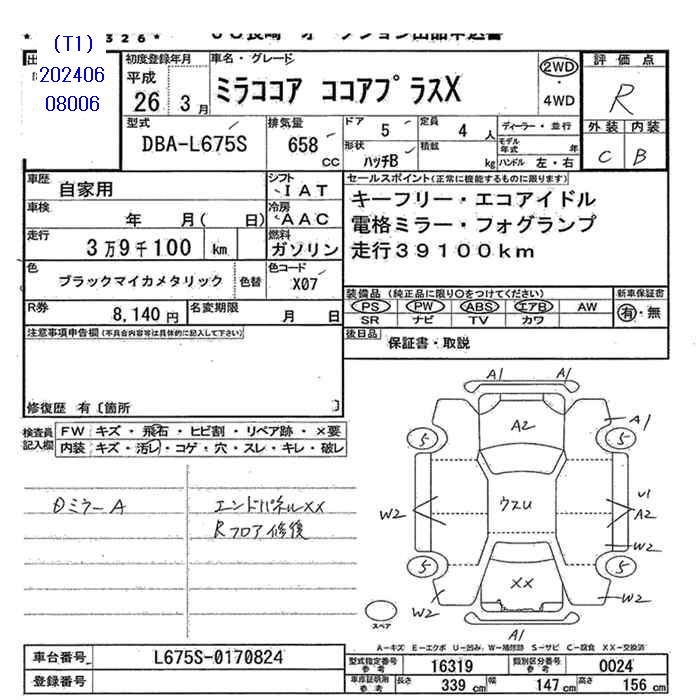 (T1)
202406
08006
326*
JU長崎 オークション出品申込書
初度登録年月
平成
26 3月
車名・グレード
ミラココア ココアプラスX
2WD
・
4WD
評価点
R
外装 内装
C B
型式
DBA-L675S
排気量
658 CC
ドア 5
定員 4 人
形状 ハッチB
積載 kg
ディーラー・並行
モデル年式 年
ハンドル 左・右
車歴 自家用
シフト IAT
車検 年 月( 日)
冷房 AAC
走行 3万9千100 km
燃料 ガソリン
色 ブラックマイカメタリック 色替
色コード X07
R券 8,140円
名変期限 月 日
セールスポイント(正常に機能するものに限ります)
キーフリー・エコアイドル
電格ミラー・フォグランプ
走行39100km
装備品(純正品に限り○をつけてください)
PS PW ABS エアB AW
SR ナビ TV カワ
新車保証書
有・無
後日品 保証書・取説
注意事項申告欄(不具合内容等は具体的に記入して下さい)
修復歴 有〔箇所 〕
検査員記入欄
FW キズ・飛石・ヒビ割・リペア跡・×要
内装 キズ・汚レ・コゲ・穴・スレ・キレ・破レ
エンドパネルXX
Rフロア修後
A1 A1
A2
A1
5 5
ウスU
W2
U1
A2
W2
5 5
XX
W2
W2
A1
スペア
A-キズ E-エクボ U-凹み W-補修跡 S-サビ C-腐食 XX-交換済
車台番号 L675S-0170824
登録番号
型式指定番号 参考 16319
類別区分番号 参考 0024
車庫証明用 参考 長さ 339cm 幅 147cm 高さ 156cm